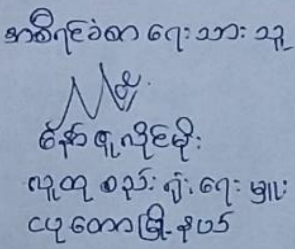 အစီရင်ခံစာ ရေးသားသူ
နော်ဇူလိုင်မိုး
လူထုစည်းရုံးရေးမှူး
ငပုတောမြို့နယ်